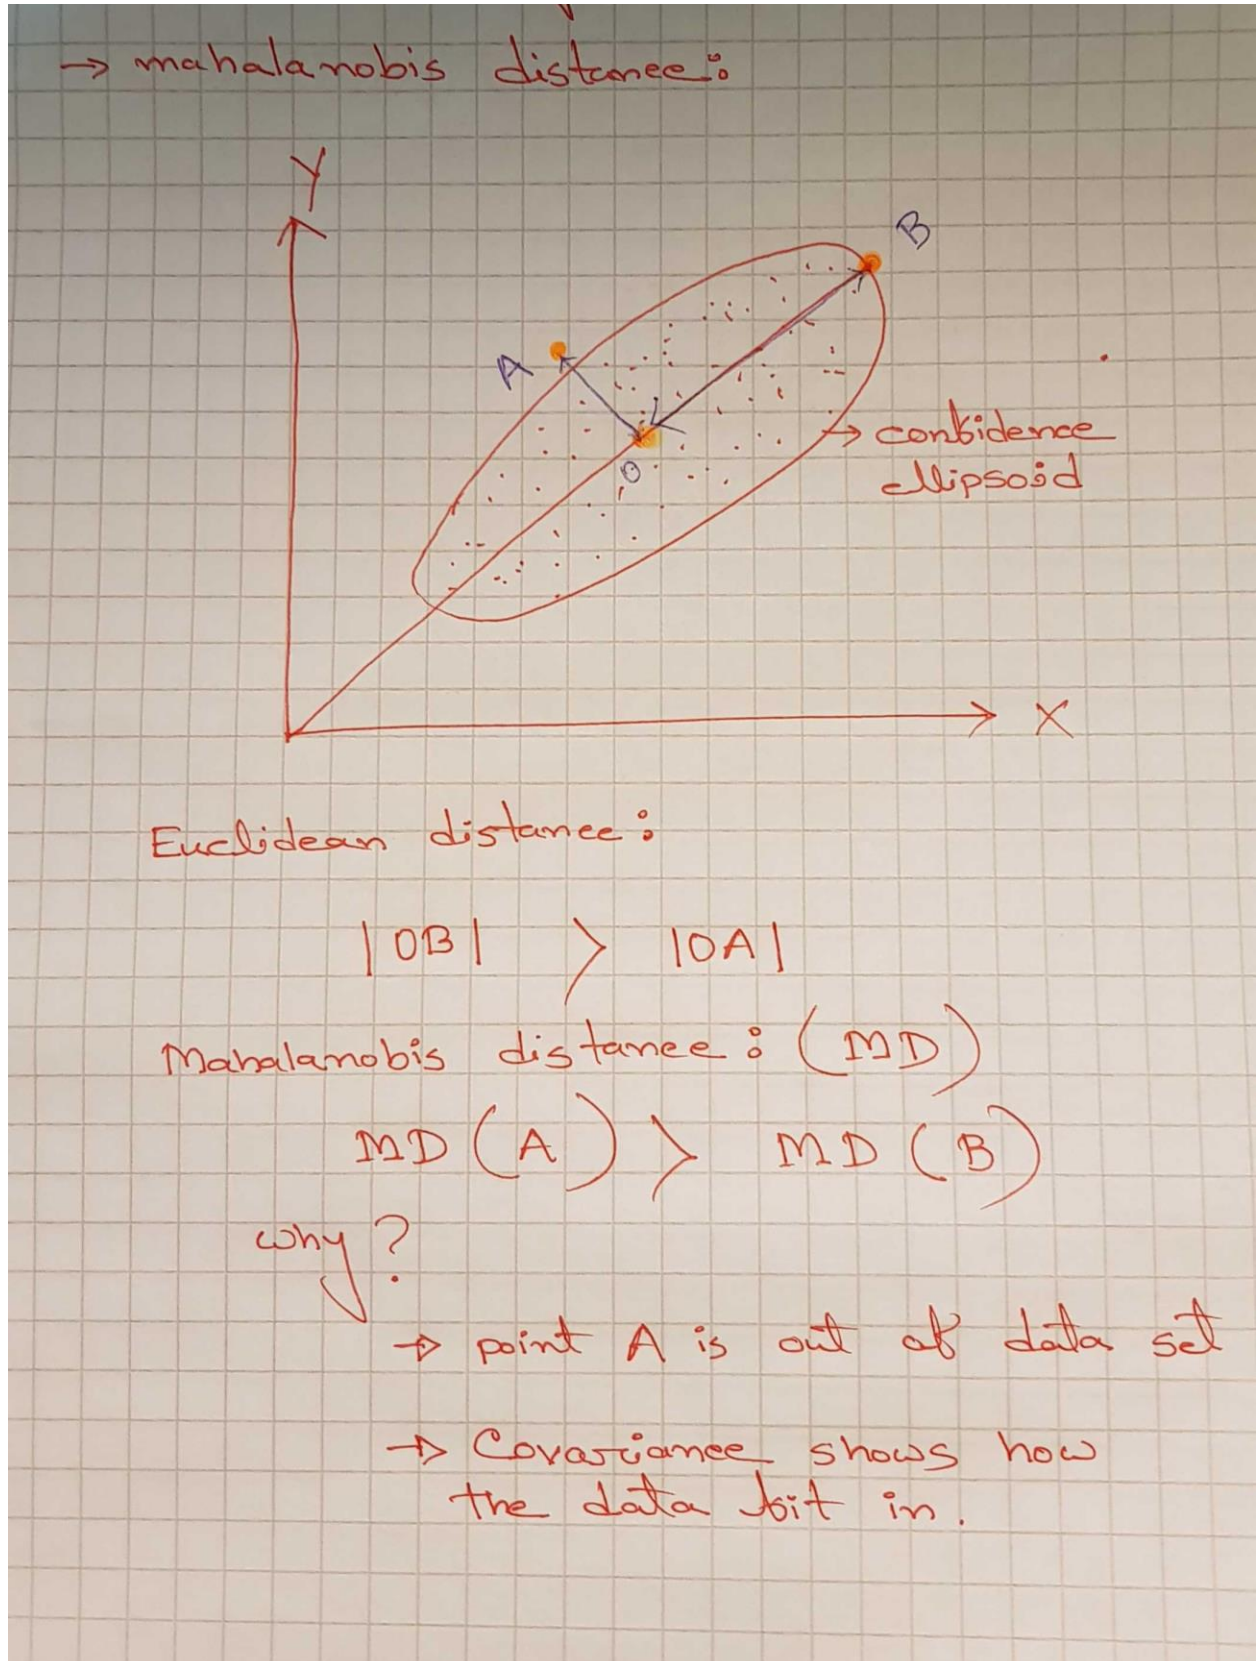 → mahalanobis distance:
Y
B
A
O
→ confidence
ellipsoid
X
Euclidean distance:
|OB| > |OA|
Mahalanobis distance: (MD)
MD (A) > MD (B)
why?
→ point A is out of data set
→ Covariance shows how
the data fit in.